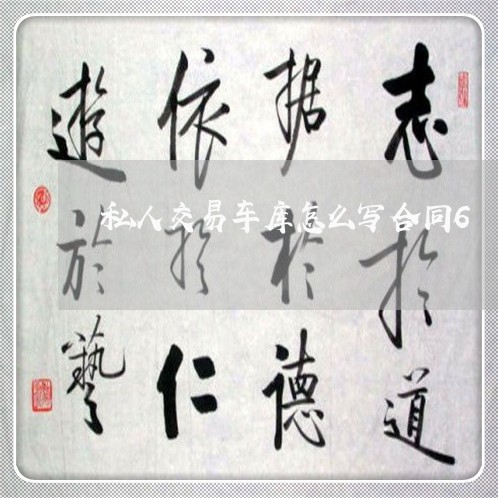 志於道
据於德
依於仁
遊於藝
私人交易车库怎么写合同6